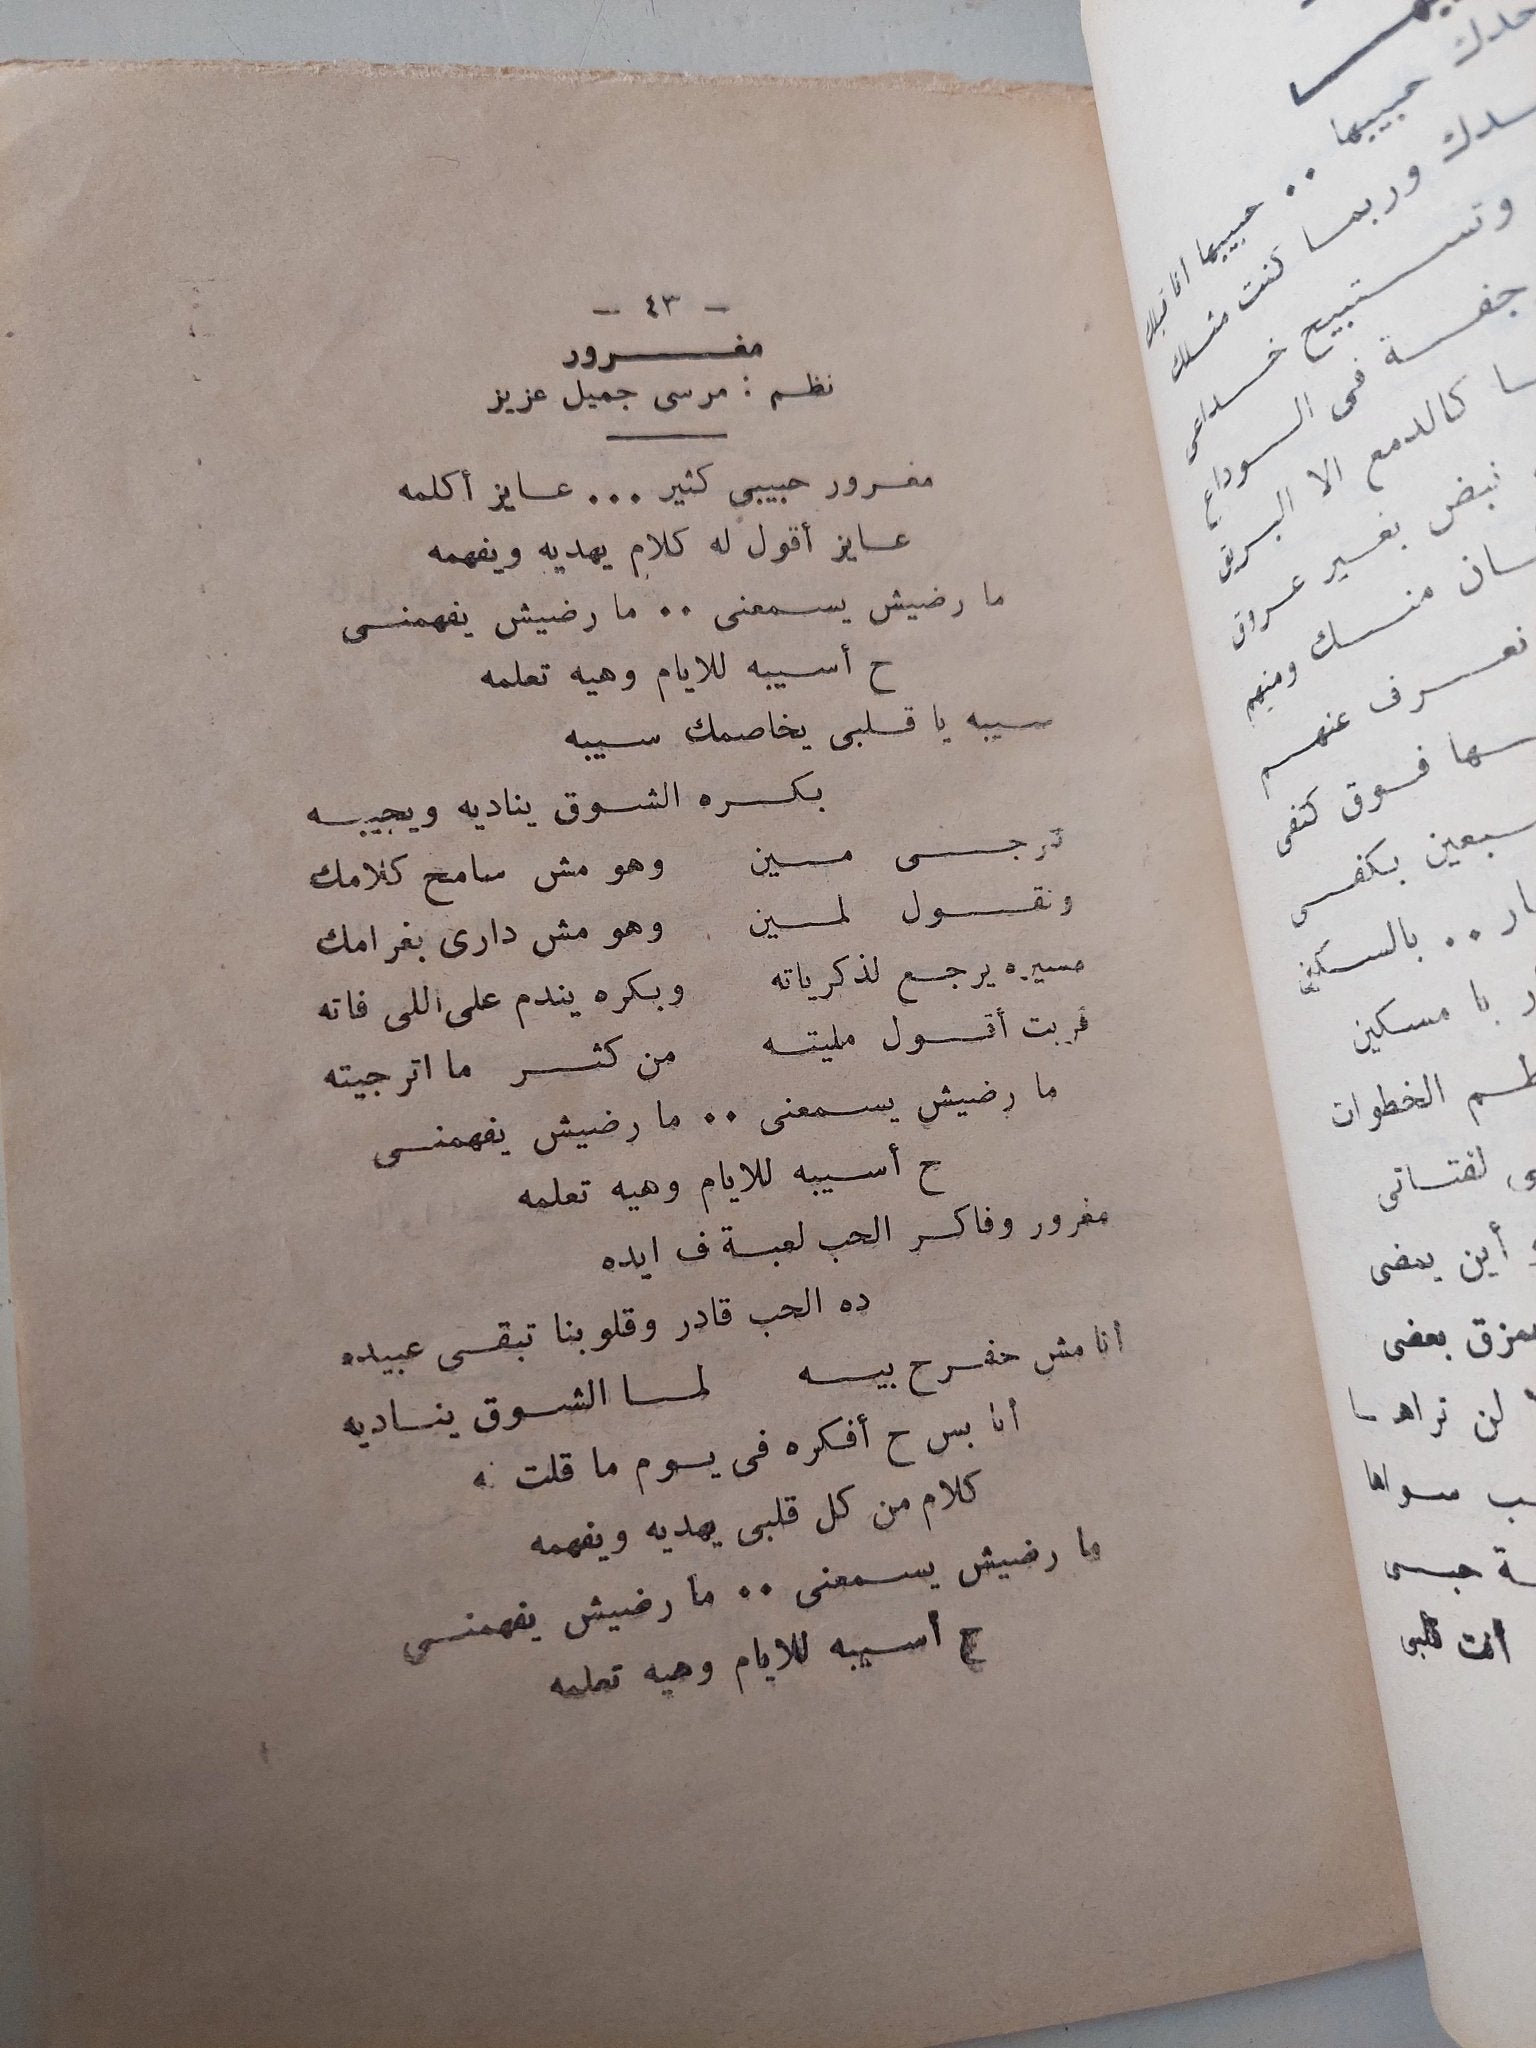 — ٤٣ —
مغرور
نظم : مرسى جميل عزيز
مغرور حبيبى كثير ... عايز أكلمه
عايز أقول له كلام يهديه ويفهمه
ما رضيش يسمعنى .. ما رضيش يفهمنى
ح أسيبه للايام وهيه تعلمه
سيبه يا قلبى يخاصمك سيبه
بكره الشوق يناديه ويجيبه
ترجى مين وهو مش سامح كلامك
ونقول لمين وهو مش دارى بغرامك
مسيره يرجع لذكرياته وبكره يندم على اللى فاته
قربت أقول مليته من كثر ما اترجيته
ما رضيش يسمعنى .. ما رضيش يفهمنى
ح أسيبه للايام وهيه تعلمه
مغرور وفاكر الحب لعبة ف ايده
ده الحب قادر وقلوبنا تبقى عبيده
انا مش حفرح بيه لما الشوق يناديه
أنا بس ح أفكره فى يوم ما قلت له
كلام من كل قلبى يهديه ويفهمه
ما رضيش يسمعنى .. ما رضيش يفهمنى
ح أسيبه للايام وهيه تعلمه
حبيبها .. حبيبها انا قبلك
وربما كنت مثلك
وتستبيح خداعى
فى الوداع
كالدمع الا البريق
نبض بغير عراق
منك ومنهم
نعرف عنهم
فوق كتفى
بكفى
.. بالسكين
يا مسكين
الخطوات
لفتاتى
أين يمضى
يمزق بعضى
لن نراها
سواها
حبى
أنت قلبى